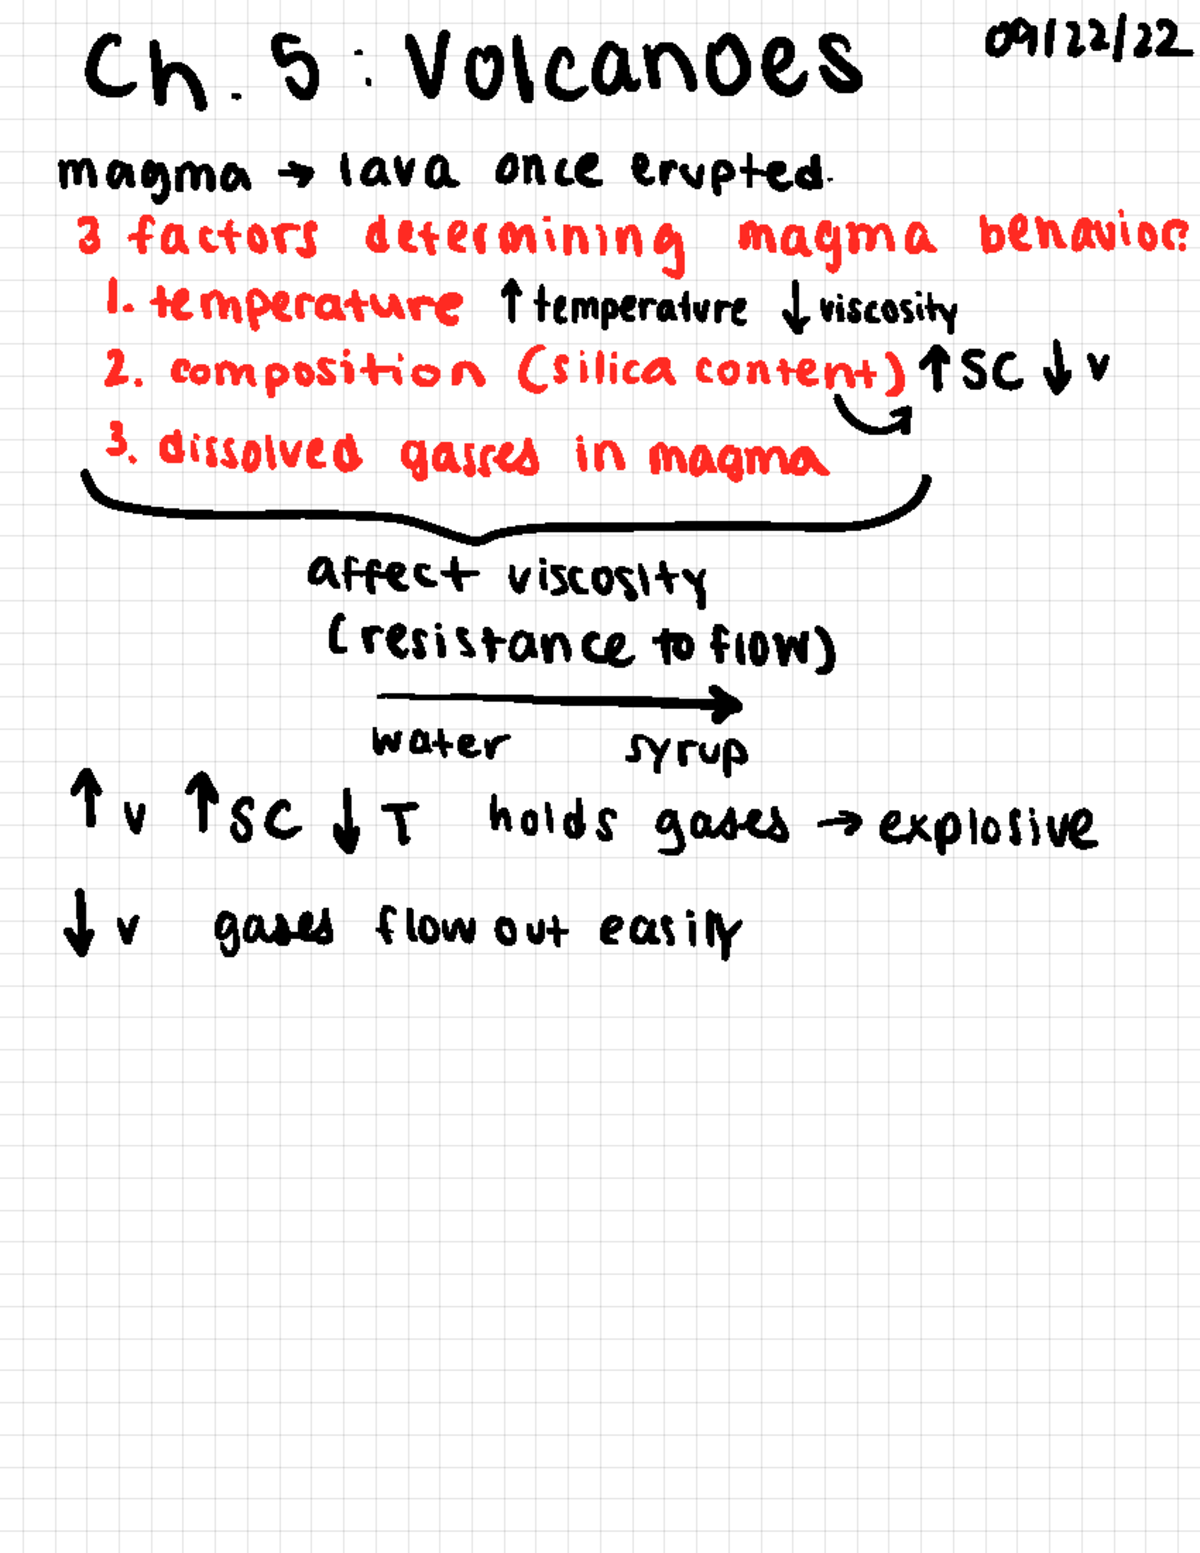 Ch. 5: Volcanoes
09/22/22
magma → lava once erupted.
3 factors determining magma behavior:
1. temperature ↑ temperature ↓ viscosity
2. composition (silica content) ↑ SC ↓ v
3. dissolved gasses in magma
affect viscosity
(resistance to flow)
water syrup
↑ v ↑ SC ↓ T holds gases → explosive
↓ v gases flow out easily